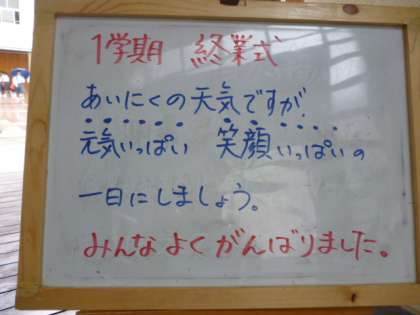 1学期 終業式
あいにくの天気ですが、
元気いっぱい 笑顔いっぱいの
一日にしましょう。
みんなよくがんばりました。